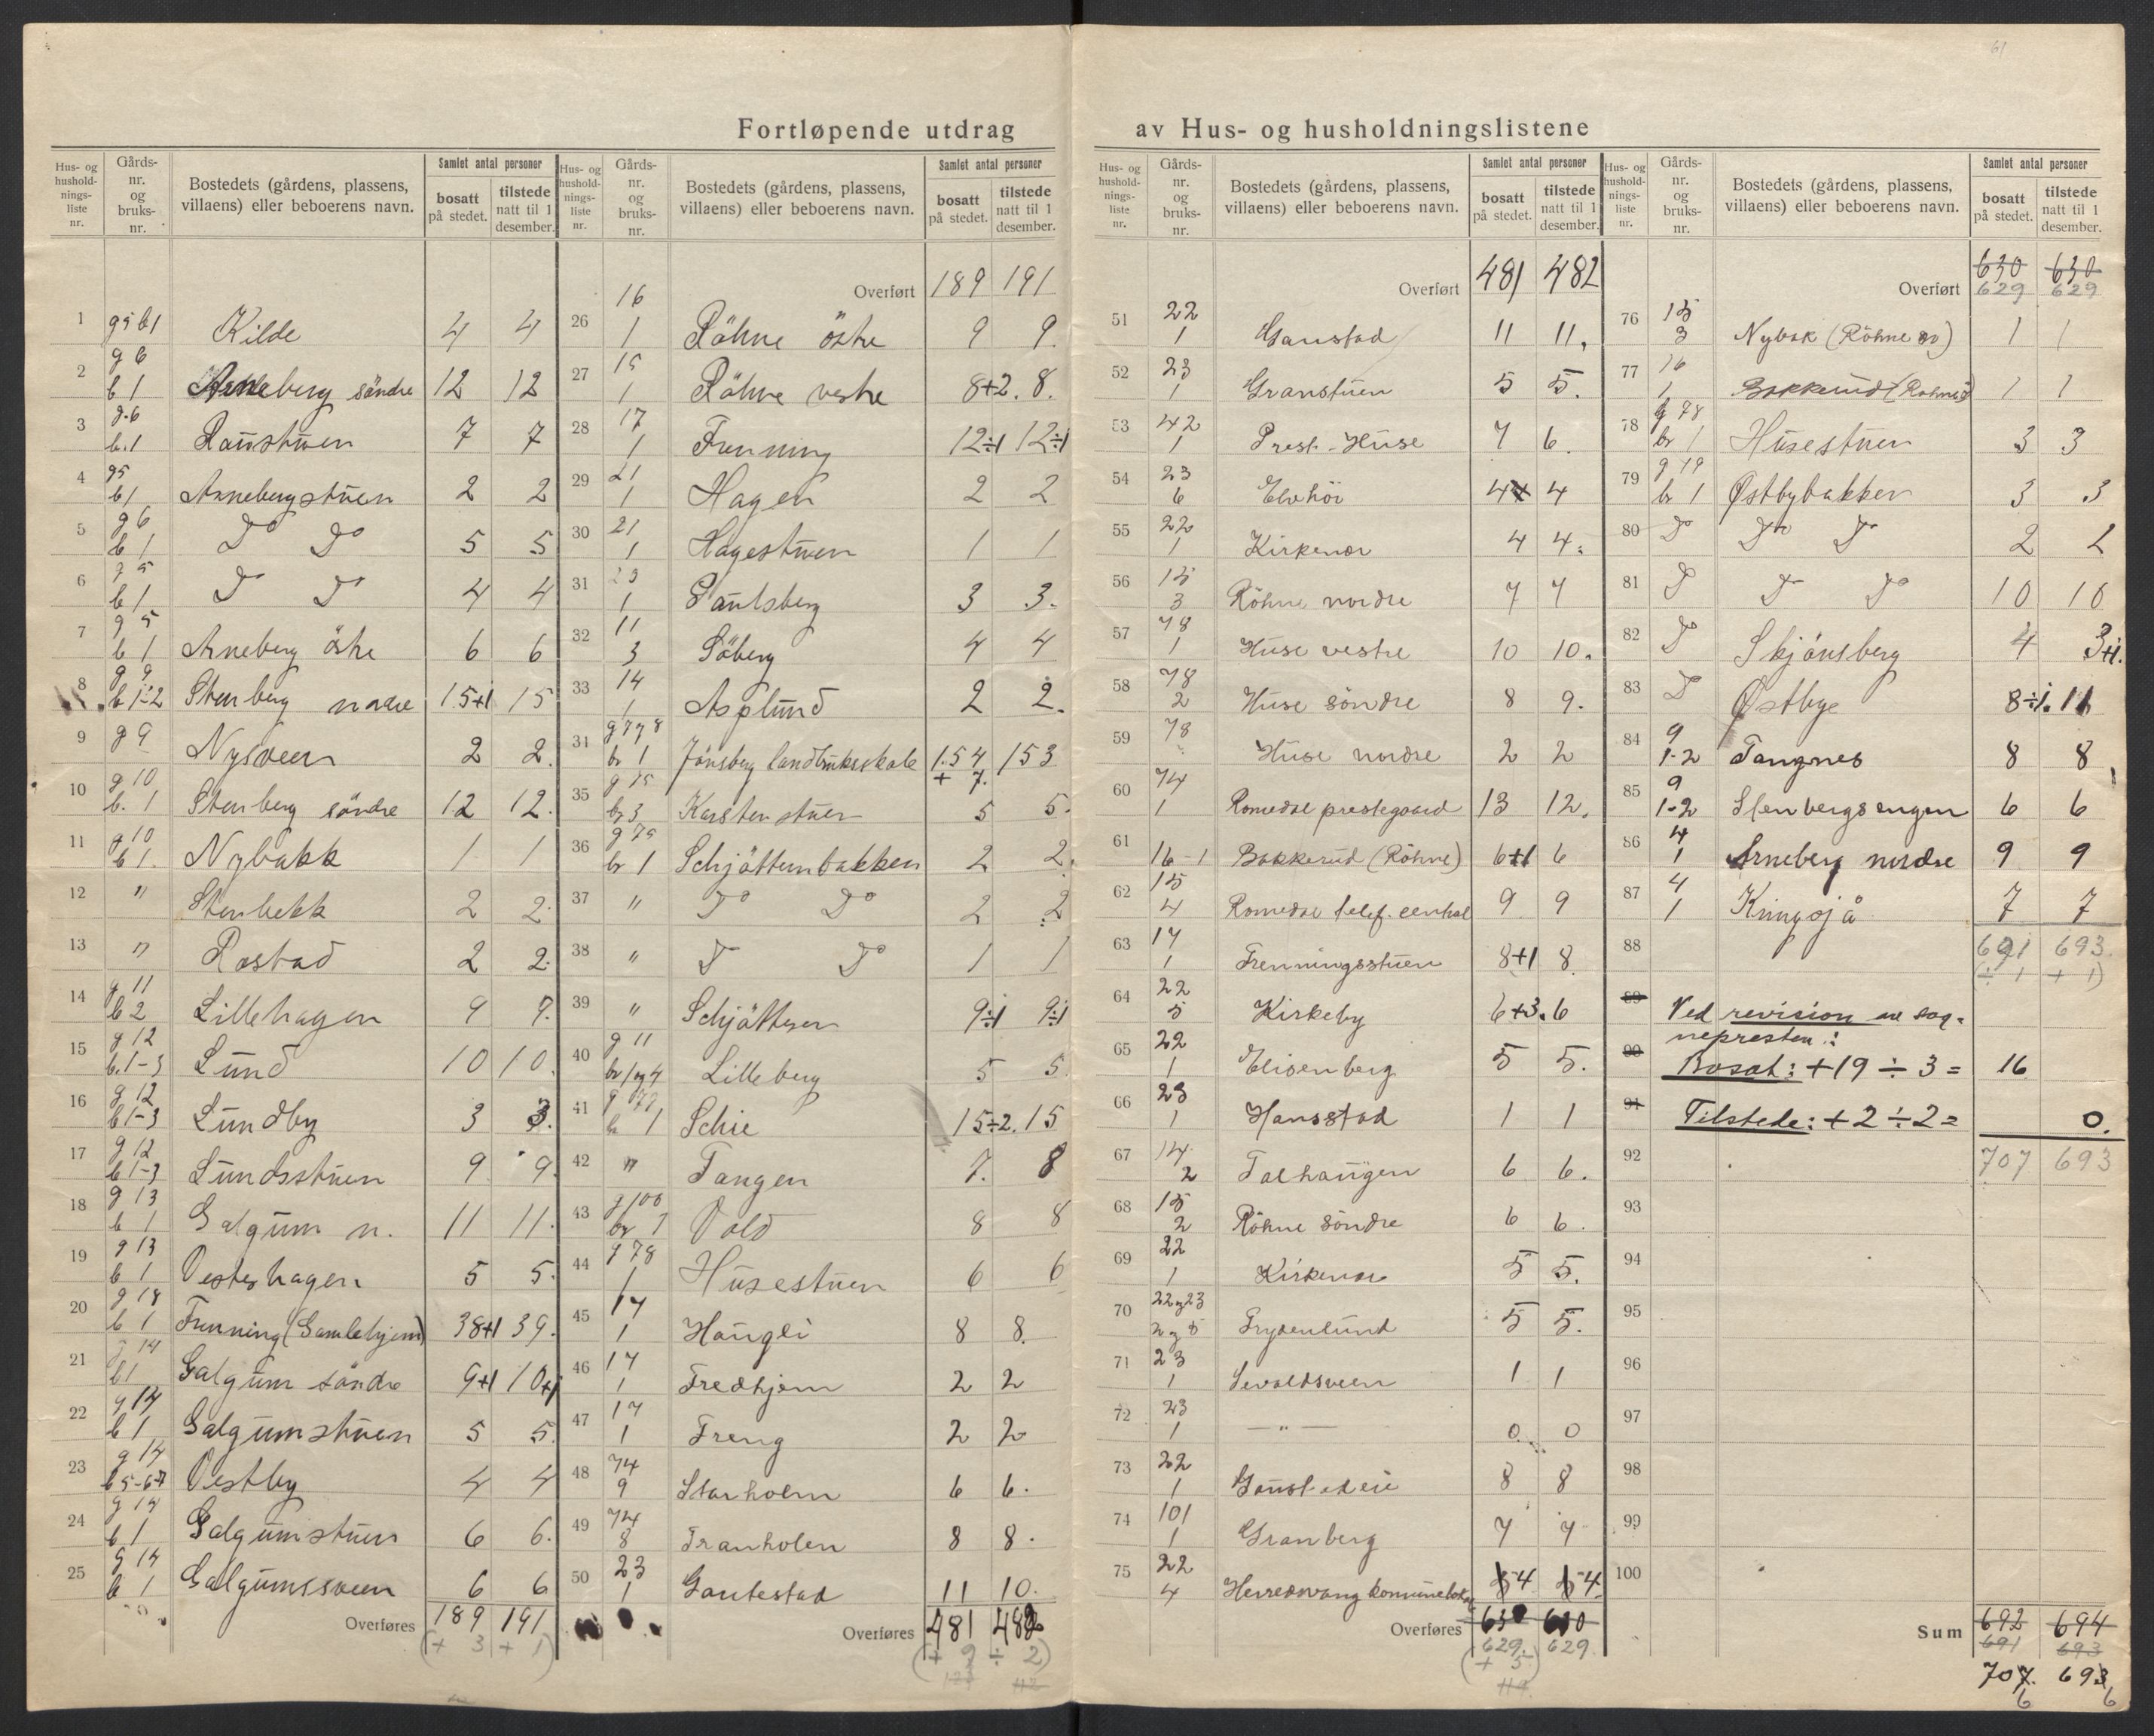 61
Fortløpende utdrag av Hus- og husholdningslistene
Hus- og hushold- nings- liste nr. Gårds- nr. og bruks- nr. Bostedets (gårdens, plassens, villaens) eller beboerens navn. Samlet antal personer bosatt på stedet. tilstede natt til 1 desember.
1 g5 b1 Kilde 4 4
2 g6 b1 Arneberg söndre 12 12
3 g.6 b.1 Raustuen 7 7
4 g5 b1 Arnebergstuen 2 2
5 g6 b1 Do Do 5 5
6 g5 b1 Do Do 4 4
7 g5 b1 Arneberg östre 6 6
8 g9 b1-2 Stenberg nordre 15+1 15
9 g9 Nysveen 2 2
10 g10 b.1 Stenberg söndre 12 12.
11 g10 b1. Nybakk 1 1
12 " Stenbekk 2 2
13 " Rostad 2 2
14 g11 b2 Lillehagen 9 9.
15 g12 b.1-3 Lund 10 10.
16 g12 b1-3 Lundby 3 3.
17 g12 b1-3 Lundsstuen 9 9.
18 g13 b1 Galgum n. 11 11.
19 g13 b1 Vestehagen 5 5.
20 g18 b1 Frenning (Gamlehjem) 38+1 39.
21 g14 b1 Galgum söndre 9+1 10+1
22 g14 b1 Galgumstuen 5 5.
23 g14 b5-6-7 Vestby 4 4
24 g14 b1 Galgumstuen 6 6.
25 g14 b1 Galgumssveen 6 6
Overføres 189 191
(+ 3 + 1)
Hus- og hushold- nings- liste nr. Gårds- nr. og bruks- nr. Bostedets (gårdens, plassens, villaens) eller beboerens navn. Samlet antal personer bosatt på stedet. tilstede natt til 1 desember.
Overført 189 191
26 16 1 Röhne östre 9 9.
27 15 1 Röhne vestre 8+2. 8.
28 17 1 Frenning 12÷1 12÷1
29 21 1 Hagen 2 2
30 21 1 Hagestuen 1 1
31 23 1 Paulsberg 3 3.
32 11 3 Söberg 4 4
33 14 1 Asplund 2 2.
34 g77g8 br 1 Jönsberg landbruksskole 154 + 7. 153
35 g75 br3 Karstenstuen 5 5.
36 g79 br 1 Schjöttenbakken 2 2.
37 " Do Do 2 2
38 " Do Do 1 1
39 " Schjöttsen 9÷1 9÷1
40 g11 br 1og4 Lilleberg 5 5
41 g78 br 1 Schie 15÷2. 15
42 " Tangen 7. 8
43 g100 br 1 Vold 8 8
44 g78 1 Husestuen 6 6
45 17 1 Haugli 8 8.
46 17 1 Fredhjem 2 2
47 17 1 Freng 2 2
48 74 9 Starholm 6 6.
49 74 8 Tranholen 8 8.
50 23 1 Gautestad 11 10.
Overføres 481 482
(+ 9 ÷ 2)
Hus- og hushold- nings- liste nr. Gårds- nr. og bruks- nr. Bostedets (gårdens, plassens, villaens) eller beboerens navn. Samlet antal personer bosatt på stedet. tilstede natt til 1 desember.
Overført 481 482
51 22 1 Gaustad 11 11.
52 23 1 Granstuen 5 5.
53 42 1 Prest-Huse 7 6.
54 23 6 Elvhöi 4 4
55 22 1 Kirkenær 4 4.
56 15 3 Röhne nordre 7 7
57 78 1 Huse vestre 10 10.
58 78 2 Huse söndre 8 9.
59 78 Huse nordre 2 2
60 74 1 Romedal prestegaard 13 12.
61 16-1 Bakkerud (Röhne) 6+1 6
62 15 4 Romedal telef. central 9 9
63 17 1 Frenningsstuen 8+1 8
64 22 5 Kirkeby 6+3. 6
65 22 1 Elisenberg 5 5.
66 23 1 Hansstad 1 1
67 14 2 Talhaugen 6 6.
68 15 2 Röhne söndre 6 6.
69 22 1 Kirkenær 5 5.
70 22og23 2 og 5 Frydenlund 5 5.
71 23 1 Sevaldsveen 1 1
72 23 1 — " — 0 0
73 22 1 Gaustadeie 8 8
74 101 1 Granberg 7 7
75 22 4 Herredsvang kommunelokale 4 4.
Overføres 630 630
629. 629.
(+ 5)
Hus- og hushold- nings- liste nr. Gårds- nr. og bruks- nr. Bostedets (gårdens, plassens, villaens) eller beboerens navn. Samlet antal personer bosatt på stedet. tilstede natt til 1 desember.
Overført 630 630
629 629
76 15 3 Nybak (Röhne nr) 1 1
77 16 1 Bakkerud (Röhne ö) 1 1
78 g 78 br 1 Husestuen 3 3
79 g 19 br 1 Østbybakken 3 3
80 Do Do Do 2 2
81 Do Do Do 10 10
82 Do Skjönsberg 4 3+1.
83 Do Østbye 8÷1. 11
84 9 1-2 Tangnes 8 8
85 9 1-2 Stenbergsengen 6 6
86 4 1 Arneberg nordre 9 9
87 4 1 Kringsjå 7 7
88 691 693.
(÷ 1 + 1)
89 Ved revision av sog-
nepresten:
90 Bosat: +19 ÷ 3 = 16
91 Tilstede: +2 ÷ 2 = 0.
92 707 693
93
94
95
96
97
98
99
100
Sum 692 694
691 693
707. 693
6 6